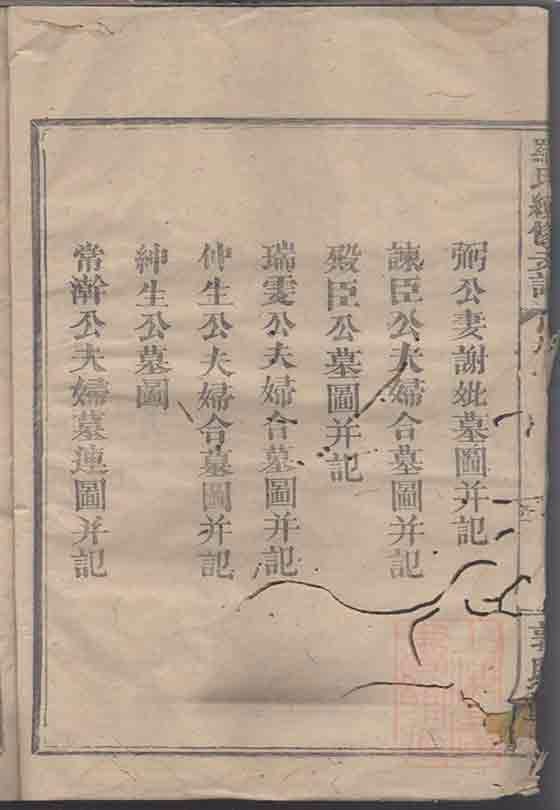 弼公妻謝妣墓圖并記
諫臣公夫婦合墓圖并記
殿臣公墓圖并記
瑞雯公夫婦合墓圖并記
伸生公夫婦合墓圖并記
紳生公墓圖
常澣公夫婦墓連圖并記